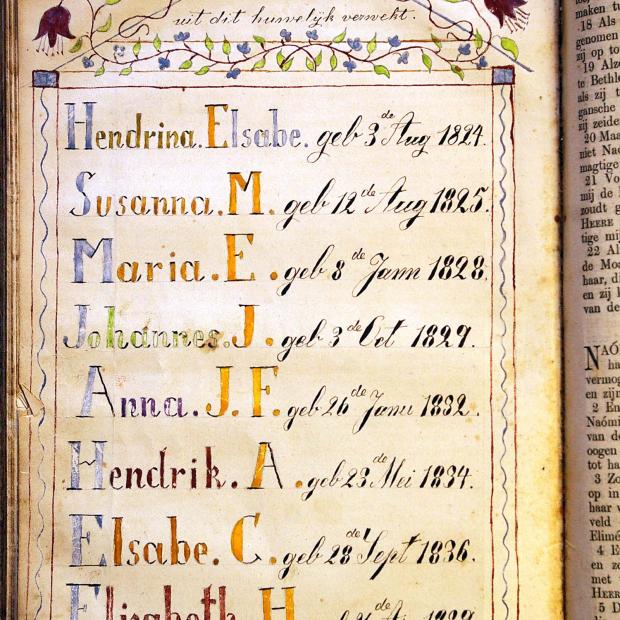 uit dit huwelijk verwekt.
Hendrina. Elsabe. geb 3de Aug 1824.
Susanna. M. geb 12de Aug 1825.
Maria. E. geb 8de Jann 1828.
Johannes. J. geb 3de Oct 1829.
Anna. J. F. geb 26de Janu 1832.
Hendrik. A. geb 23de Mei 1834.
Elsabe. C. geb 28de Sept 1836.
Elisabeth. H.
maken
18 Als
genomen
zij op
19
te
als zij
gansche
zij zeide
20
niet
magtige
21
mij de
zoudt
HEERE
tige
22
de
haar,
en zij
van de
NAÓ
ha
vermog
en zijn
2 En
Naómi
van de
oogen
tot ha
3 Zo
op in
haar v
veld
Elimé
4 E
en zo
met
HEER
5 D